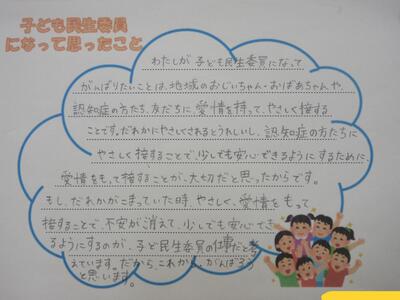 子ども民生委員
になって思ったこと
わたしが子ども民生委員になって
がんばりたいことは、地域のおじいちゃん・おばあちゃんや、
認知症の方たち、友だちに、愛情を持って、やさしく接する
ことです。だれかにやさしくされるとうれしいし、認知症の方たちに
やさしく接することで、少しでも安心できるようにするために、
愛情をもって接することが、大切だと思ったからです。
もし、だれかがこまっていた時、やさしく、愛情をもって
接することで、不安が消えて、少しでも安心でき
るようにするのが、子ども民生委員の仕事だと考
えています。だから、これから、がんばろう
と思います。